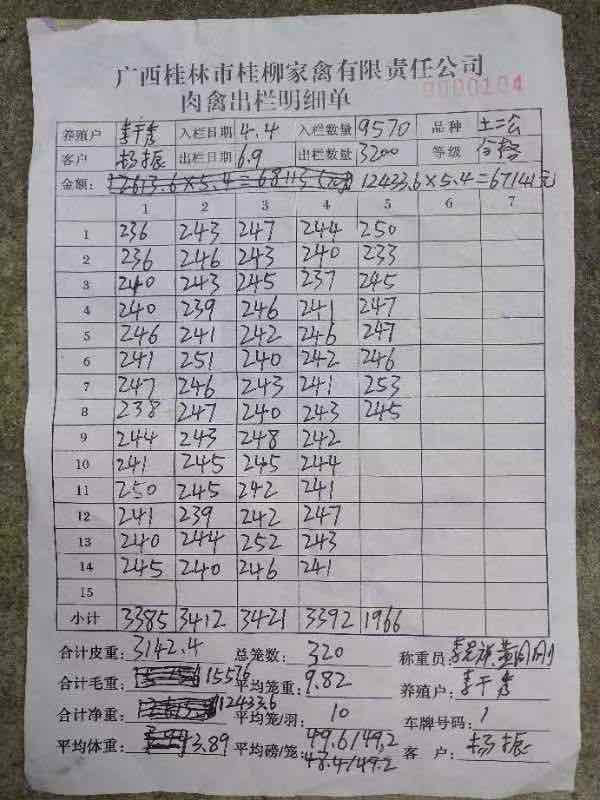 广西桂林市桂柳家禽有限责任公司
0000104
肉禽出栏明细单
养殖户 李干秀 入栏日期 4.4 入栏数量 9570 品种 土二
客户 杨振 出栏日期 6.9 出栏数量 3200 等级 合格
金额: 12433.6×5.4=67141元
1 2 3 4 5 6 7
1 236 243 247 244 250
2 236 246 243 240 233
3 240 243 245 237 245
4 240 239 246 241 247
5 246 241 242 246 247
6 241 251 240 242 246
7 247 246 243 241 253
8 238 247 240 243 245
9 244 243 248 242
10 241 245 245 244
11 250 245 242 241
12 241 239 242 247
13 240 244 252 243
14 245 240 246 241
15
小计 3385 3412 3421 3392 1966
合计皮重: 3142.4 总笼数: 320 称重员:
合计毛重: 15576 平均笼重: 9.82 养殖户: 李干秀
合计净重: 12433.6 平均笼/羽: 10 车牌号码: 1
平均体重: 3.89 平均磅/笼: 49.6/49.2 客户: 杨振
48.4/49.2